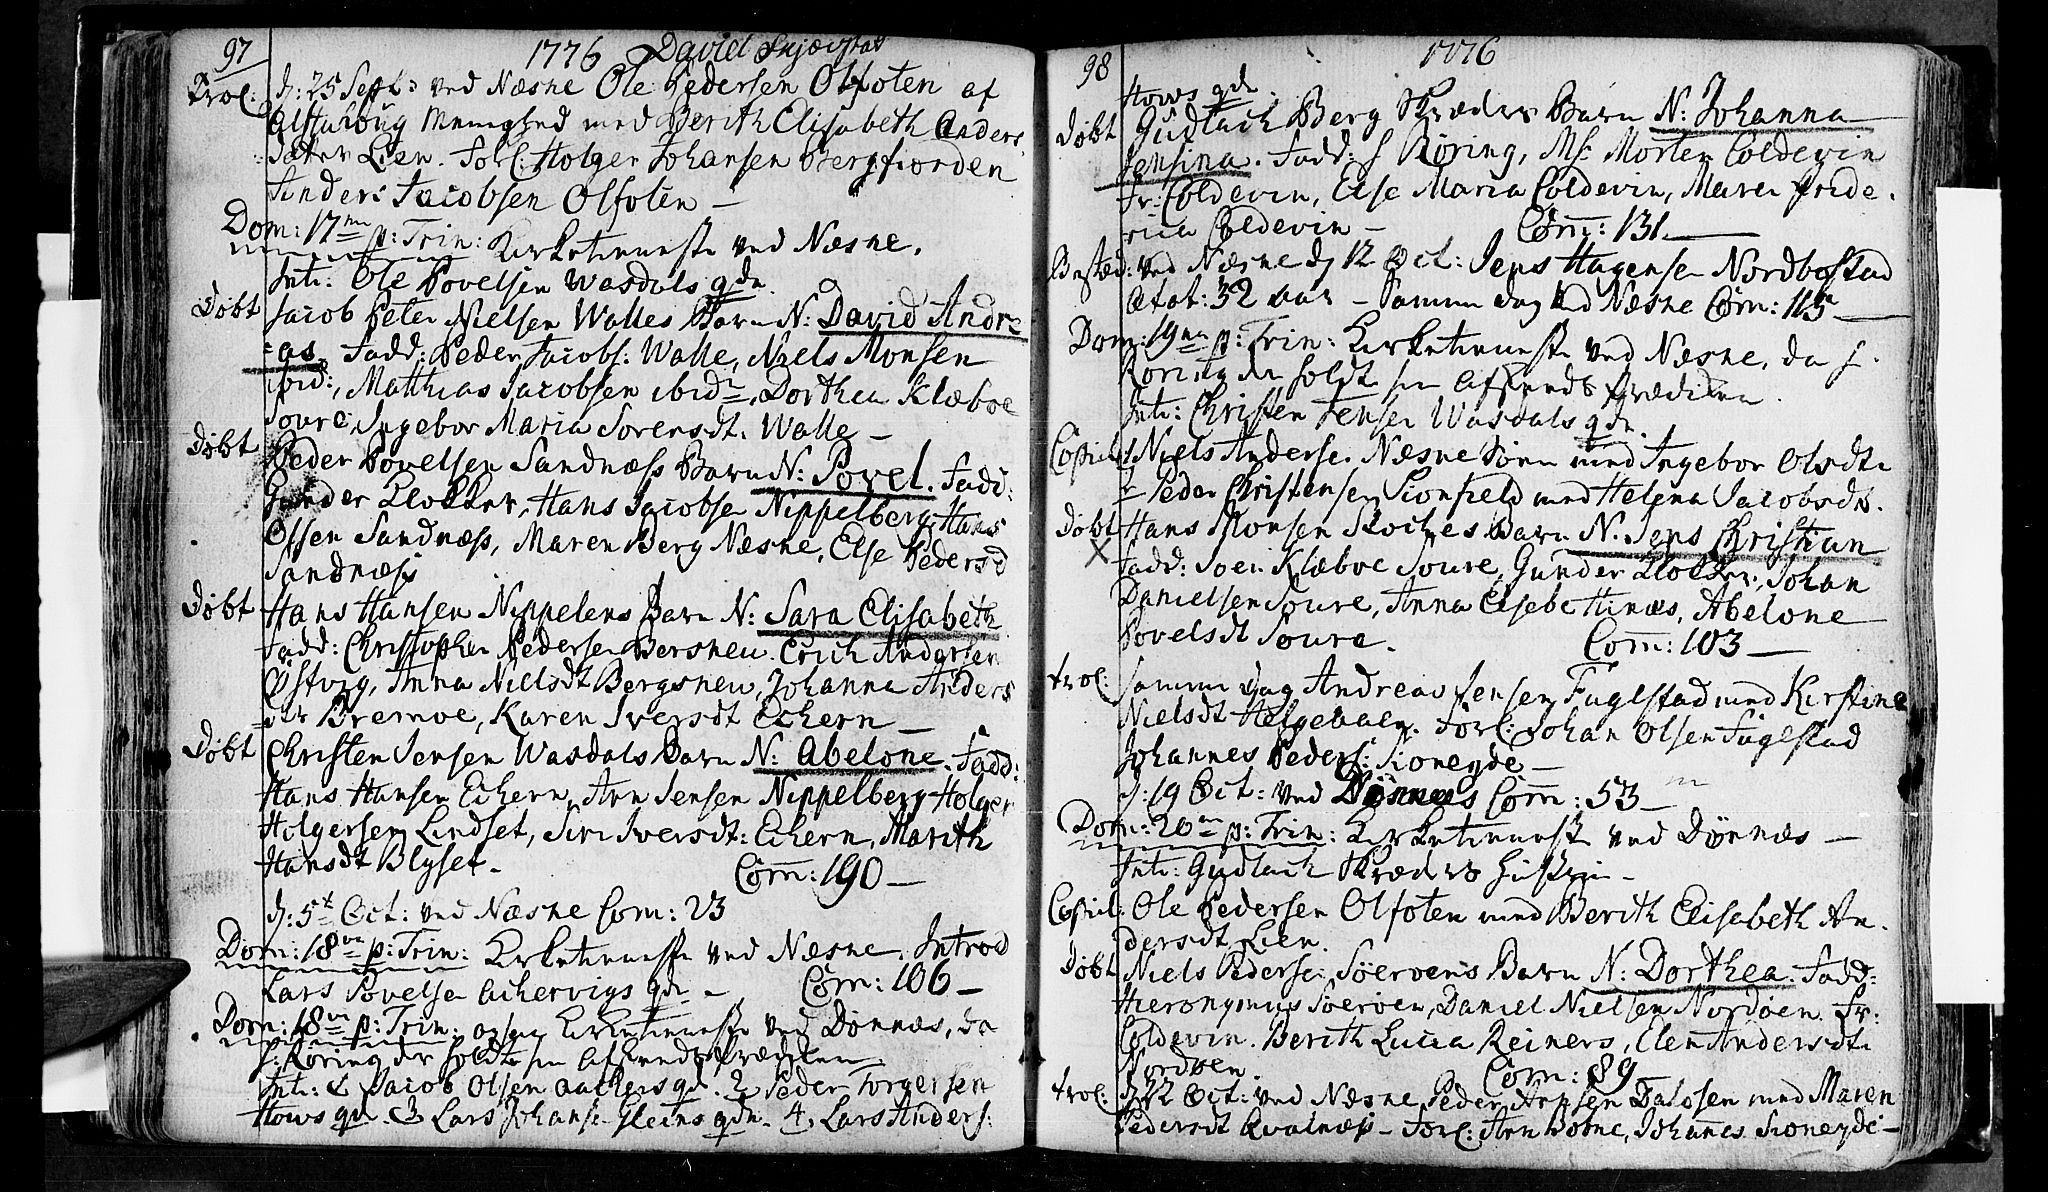 97
1776 David Skjervstad
Trol: d: 25 Sept: ved Næsne Ole Pedersen Olfoten af
Alstahoug Menighed med Berith Elisabeth Anders
dater Lien. Forl: Holger Johansen Bergfiorden
Anders Jacobsen Olfoten –
Dom: 17me p: Trin: Kirketieneste ved Næsne.
Int: Ole Povelsen Wasdals qde.
Døbt Jacob Peter Nielsen Walles Barn N: David Andre
as. Fadd: Peder Jacobs: Walle, Niels Monsen
ibid:, Matthias Jacobsen ibid, Dorthea Klæboe
Soure, Ingebor Maria Sorensdt. Walle –
Døbt Peder Povelsen Sandnæss Barn N: Povel. Fadd:
Gunder Klokker, Hans Jacobsen Nippelberg, Hans
Olsen Sandnæss, Maren Berg Næsne, Else Pedersd
Sandnæss
Døbt Hans Hansen Nippelens Barn N: Sara Elisabeth
Fadd: Christopher Pedersen Bersneu. Erich Andersen
Østvig, Anna Nielsdt Bergsneu, Johanna Anders
dtr Bremoe, Karen Iversdt Echern –
Døbt Christen Jensen Wasdals Barn N: Abelone. Fadd:
Hans Hansen Echern, Arn Jensen Nippelberg, Holger
Holgersen Lindset, Siri Iversdt: Echern, Marith
Hansdt Blyset.
Com: 190 –
d: 5t Oct: ved Næsne Com: 23
Dom: 18ve p: Trin: Kirketieneste ved Næsne. Introd
Lars Povelsen Achervigs qde – Com: 106 –
Dom: 18ve p: Trin: ogsaa Kirketieneste ved Dønnæs, da
S: Røring der holdt sin Afskeeds Prædiken
Int: 1 Jacob Olsen Aakers qd. 2 Peder Torgersen
Hows qd. 3 Lars Johans. Gleins qde. 4. Lars Anders:
98
1776
Hows qde.
Døbt Gudlach Berg Skræders Barn N: Johanna
Jensina. Fadd: S Røring, Ms: Morten Coldevin
Fr: Coldevin, Else Maria Coldevin, Maren Fride
rica Coldevin – Com: 131 –
Begraved: ved Næsne d 12 Oct: Jens Hagensen Nordbostad
Ætat: 32 aar – Samme dag ved Næsne Com: 115 –
Dom: 19na p: Trin: Kirketieneste ved Næsne, da S.
Røring der holdt sin Afskeeds Prædiken.
Int: Christen Jensen Wasdals qde.
Copul: Niels Andersen Næsne Søn med Ingebor Olsdt.
2 Peder Christensen Sionfield med Helena Jacobsdt.
Døbt Hans Monsen Skoches Barn N. Jens Christian
X Fadd: Soer. Klæboe Soure, Gunder Klokker, Johan
Danielsen Soure, Anna Elsebe Hinæs, Abelone
Povelsdt Soure. Com: 103 –
Trol: Samme dag Andreas Jensen Fuglestad med Kirstine
Nielsdt Helgebaen. Forl: Johan Olsen Fuglestad
Johannes Peders: Sioneyde –
d: 19 Oct: ved Dønnæs Com: 53 –
Dom: 20me p: Trin: Kirketieneste ved Dønnæs –
Int: Gudlach Skræders Hustrue –
Copul: Ole Pedersen Olfoten med Berith Elisabeth An
dersdt Lien.
Døbt Niels Pedersen Søeröens Barn N: Dorthea. Fadd:
Hieronymus Søeröen, Daniel Nielsen Nordöen. Fr:
Coldevin. Berith Lucia Reiners, Elen Andersdt.
Nordöen. Com: 89
Trol: d 22 Oct: ved Næsne Peder Arnsen Dalosen med Maren
Pedersdt Qvalnæss – Forl: Arn Dosne, Johanes Sioneyde –